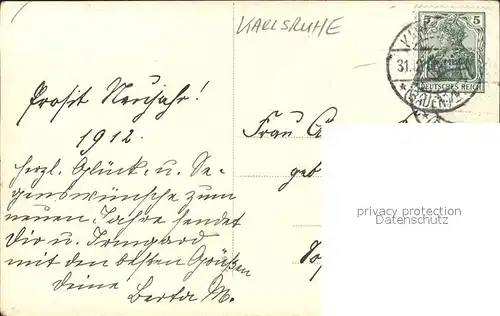 KARLSRUHE
5 5
DEUTSCHES REICH
31.12.
(BADEN)
Prosit Neujahr!
1912.
herzl. Glück- u. Se-
genswünsche zum
neuen Jahre sendet
Dir u. Irmgard
mit den besten Grüßen
Deine
Berta M.
Frau
geb
privacy protection
Datenschutz